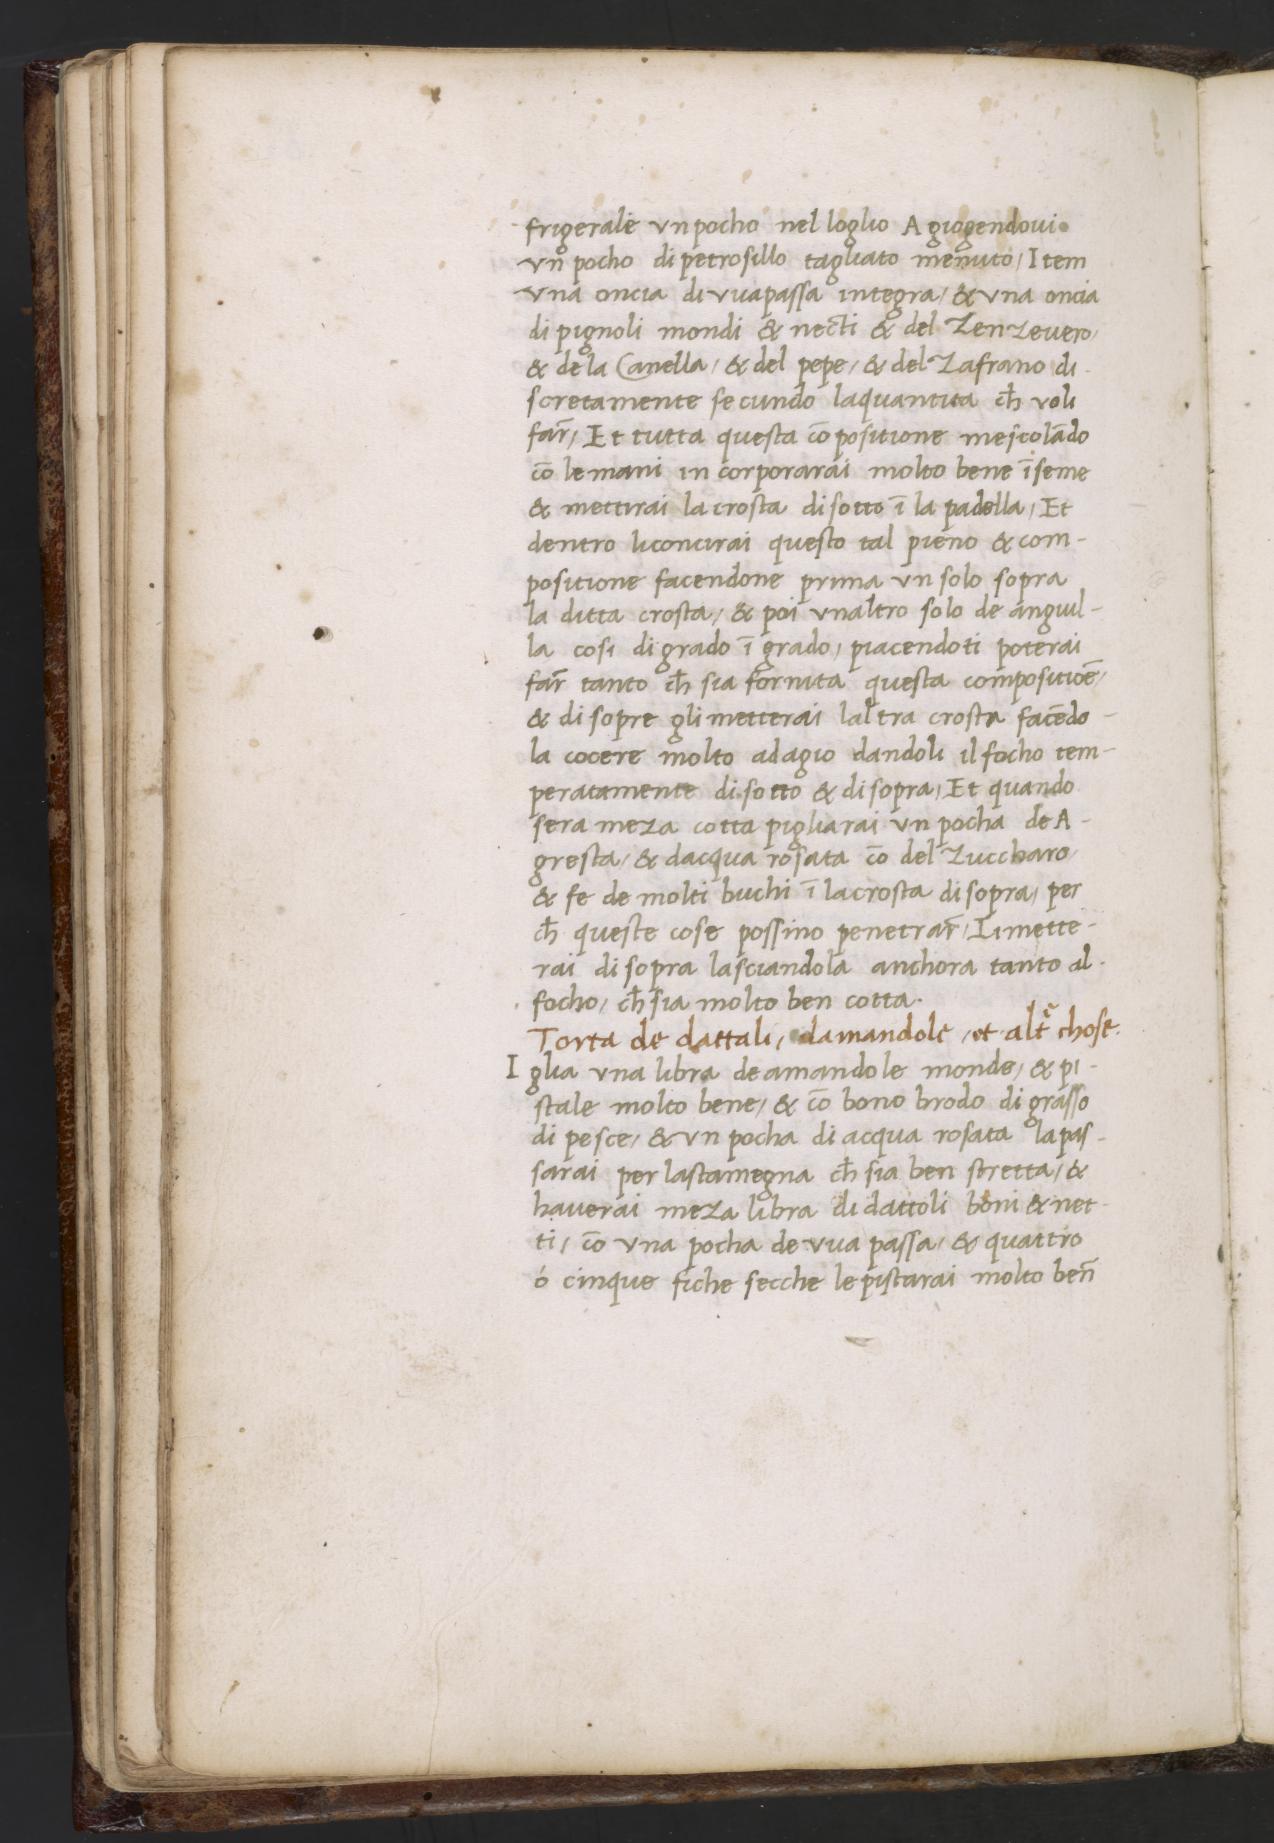 frigerale vn pocho nel loglio A giogendoui
vn pocho di petrosillo tagliato menuto, Item
vna oncia di vuapassa integra, & vna oncia
di pignoli mondi & necti & del Zenzevero,
& dela Canella, & del pepe, & del Zafrano di-
scretamente secundo laquantita ch̄ voli
far̄, Et tutta questa cōpositione mescolādo
cō le mani in corporarai molto bene īseme
& mettirai la crosta di sotto ī la padella, Et
dentro liconcirai questo tal pieno & com-
positione facendone prima vn solo sopra
la ditta crosta, & poi vnaltro solo de anguil-
la cosi di grado ī grado, piacendoti poterai
far̄ tanto ch̄ sia fornita questa compositiōe,
& di sopre gli metterai laltra crosta facēdo-
la cocere molto adagio dandoli il focho tem-
peratamente di sotto & di sopra, Et quando
sera meza cotta pigliarai vn pocha de A-
gresta, & dacqua rosata cō del Zuccharo,
& fe de molti buchi ī lacrosta di sopra, per
ch̄ queste cose possino penetrar̄, Li mette-
rai di sopra lasciandola anchora tanto al
focho, ch̄ sia molto ben cotta.
Torta de dattali, damandole, et altᵉ chose.
I glia vna libra de amandole monde, & pi-
stale molto bene, & cō bono brodo di grasso
di pesce, & vn pocha di acqua rosata la pas-
sarai per lastamegna ch̄ sia ben stretta, &
haverai meza libra di dattoli boni & net-
ti, cō vna pocha de vua passa, & quattro
ó cinque fiche secche le pistarai molto ben̄